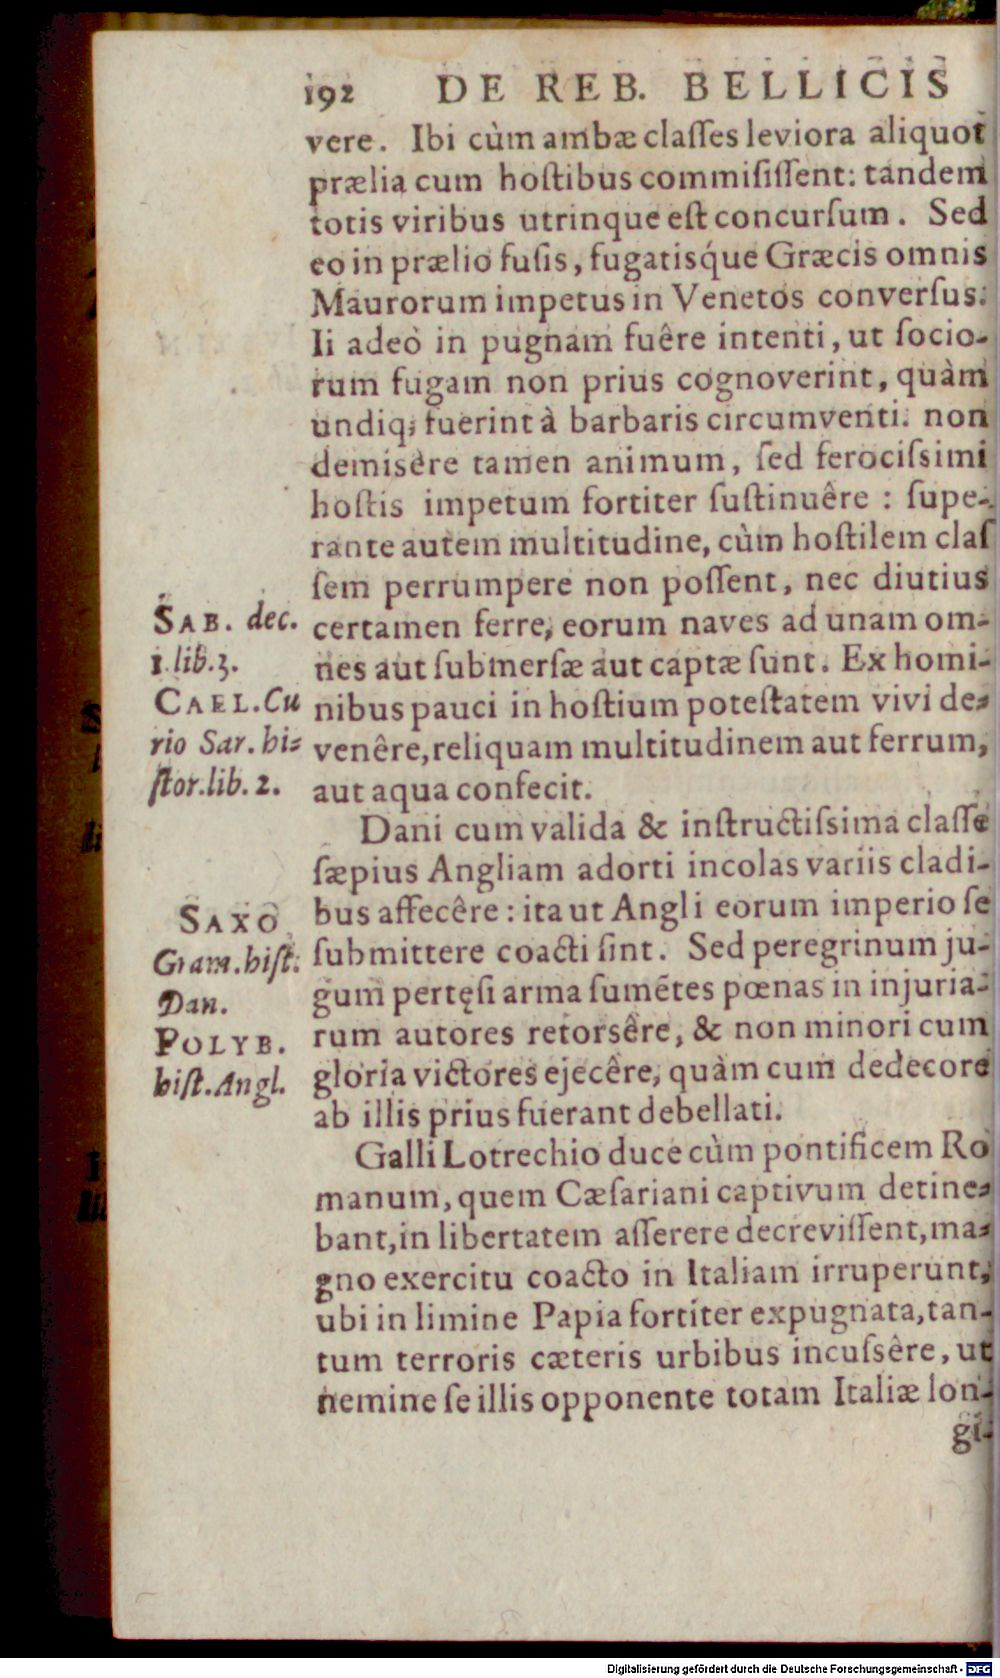 192 DE REB. BELLICIS
vere. Ibi cùm ambæ claſſes leviora aliquot
prælia cum hoſtibus commiſiſſent: tandem
totis viribus utrinque eſt concurſum. Sed
eo in prælio fuſis, fugatisq́ue Græcis omnis
Maurorum impetus in Venetos converſus.
Ii adeò in pugnam fuêre intenti, ut ſocio-
rum fugam non prius cognoverint, quàm
undiq; fuerint à barbaris circumventi. non
demisêre tamen animum, ſed ferociſsimi
hoſtis impetum fortiter ſuſtinuêre : ſupe-
rante autem multitudine, cùm hoſtilem claſ
ſem perrumpere non poſſent, nec diutius
certamen ferre, eorum naves ad unam om-
nes aut ſubmerſæ aut captæ ſunt. Ex homi-
nibus pauci in hoſtium poteſtatem vivi de-
venêre, reliquam multitudinem aut ferrum,
aut aqua confecit.
SAB. dec.
1 lib. 3.
CAEL. Cu
rio Sar. hi-
ſtor. lib. 2.
Dani cum valida & inſtructiſsima claſſe
ſæpius Angliam adorti incolas variis cladi-
bus affecêre : ita ut Angli eorum imperio ſe
ſubmittere coacti ſint. Sed peregrinum ju-
gum pertęſi arma ſumẽtes pœnas in injuria-
rum autores retorsêre, & non minori cum
gloria victores ejecêre, quàm cum dedecore
ab illis prius fuerant debellati.
SAXO
Gram. hiſt.
Dan.
POLYB.
hiſt. Angl.
Galli Lotrechio duce cùm pontificem Ro
manum, quem Cæſariani captivum detine-
bant, in libertatem aſſerere decreviſſent, ma-
gno exercitu coacto in Italiam irruperunt,
ubi in limine Papia fortiter expugnata, tan-
tum terroris cæteris urbibus incuſsêre, ut
nemine ſe illis opponente totam Italiæ lon-
gi-
Digitalisierung gefördert durch die Deutsche Forschungsgemeinschaft - DFG